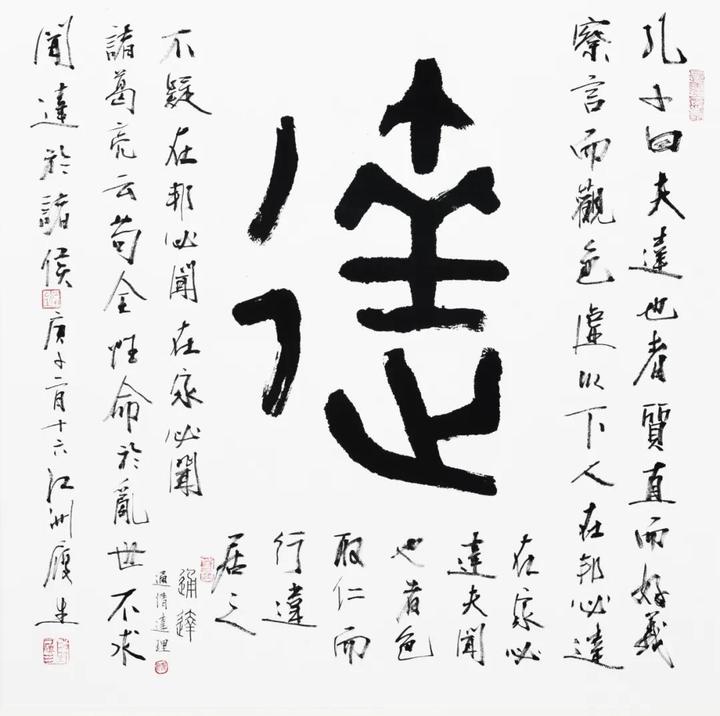 達
孔子曰夫達也者質直而好義
察言而觀色慮以下人在邦必達
在家必
達夫聞
也者色
取仁而
行違
居之
不疑在邦必聞在家必聞
諸葛亮云苟全性命於亂世不求
聞達於諸侯庚子二月十六江洲
通達
通情達理